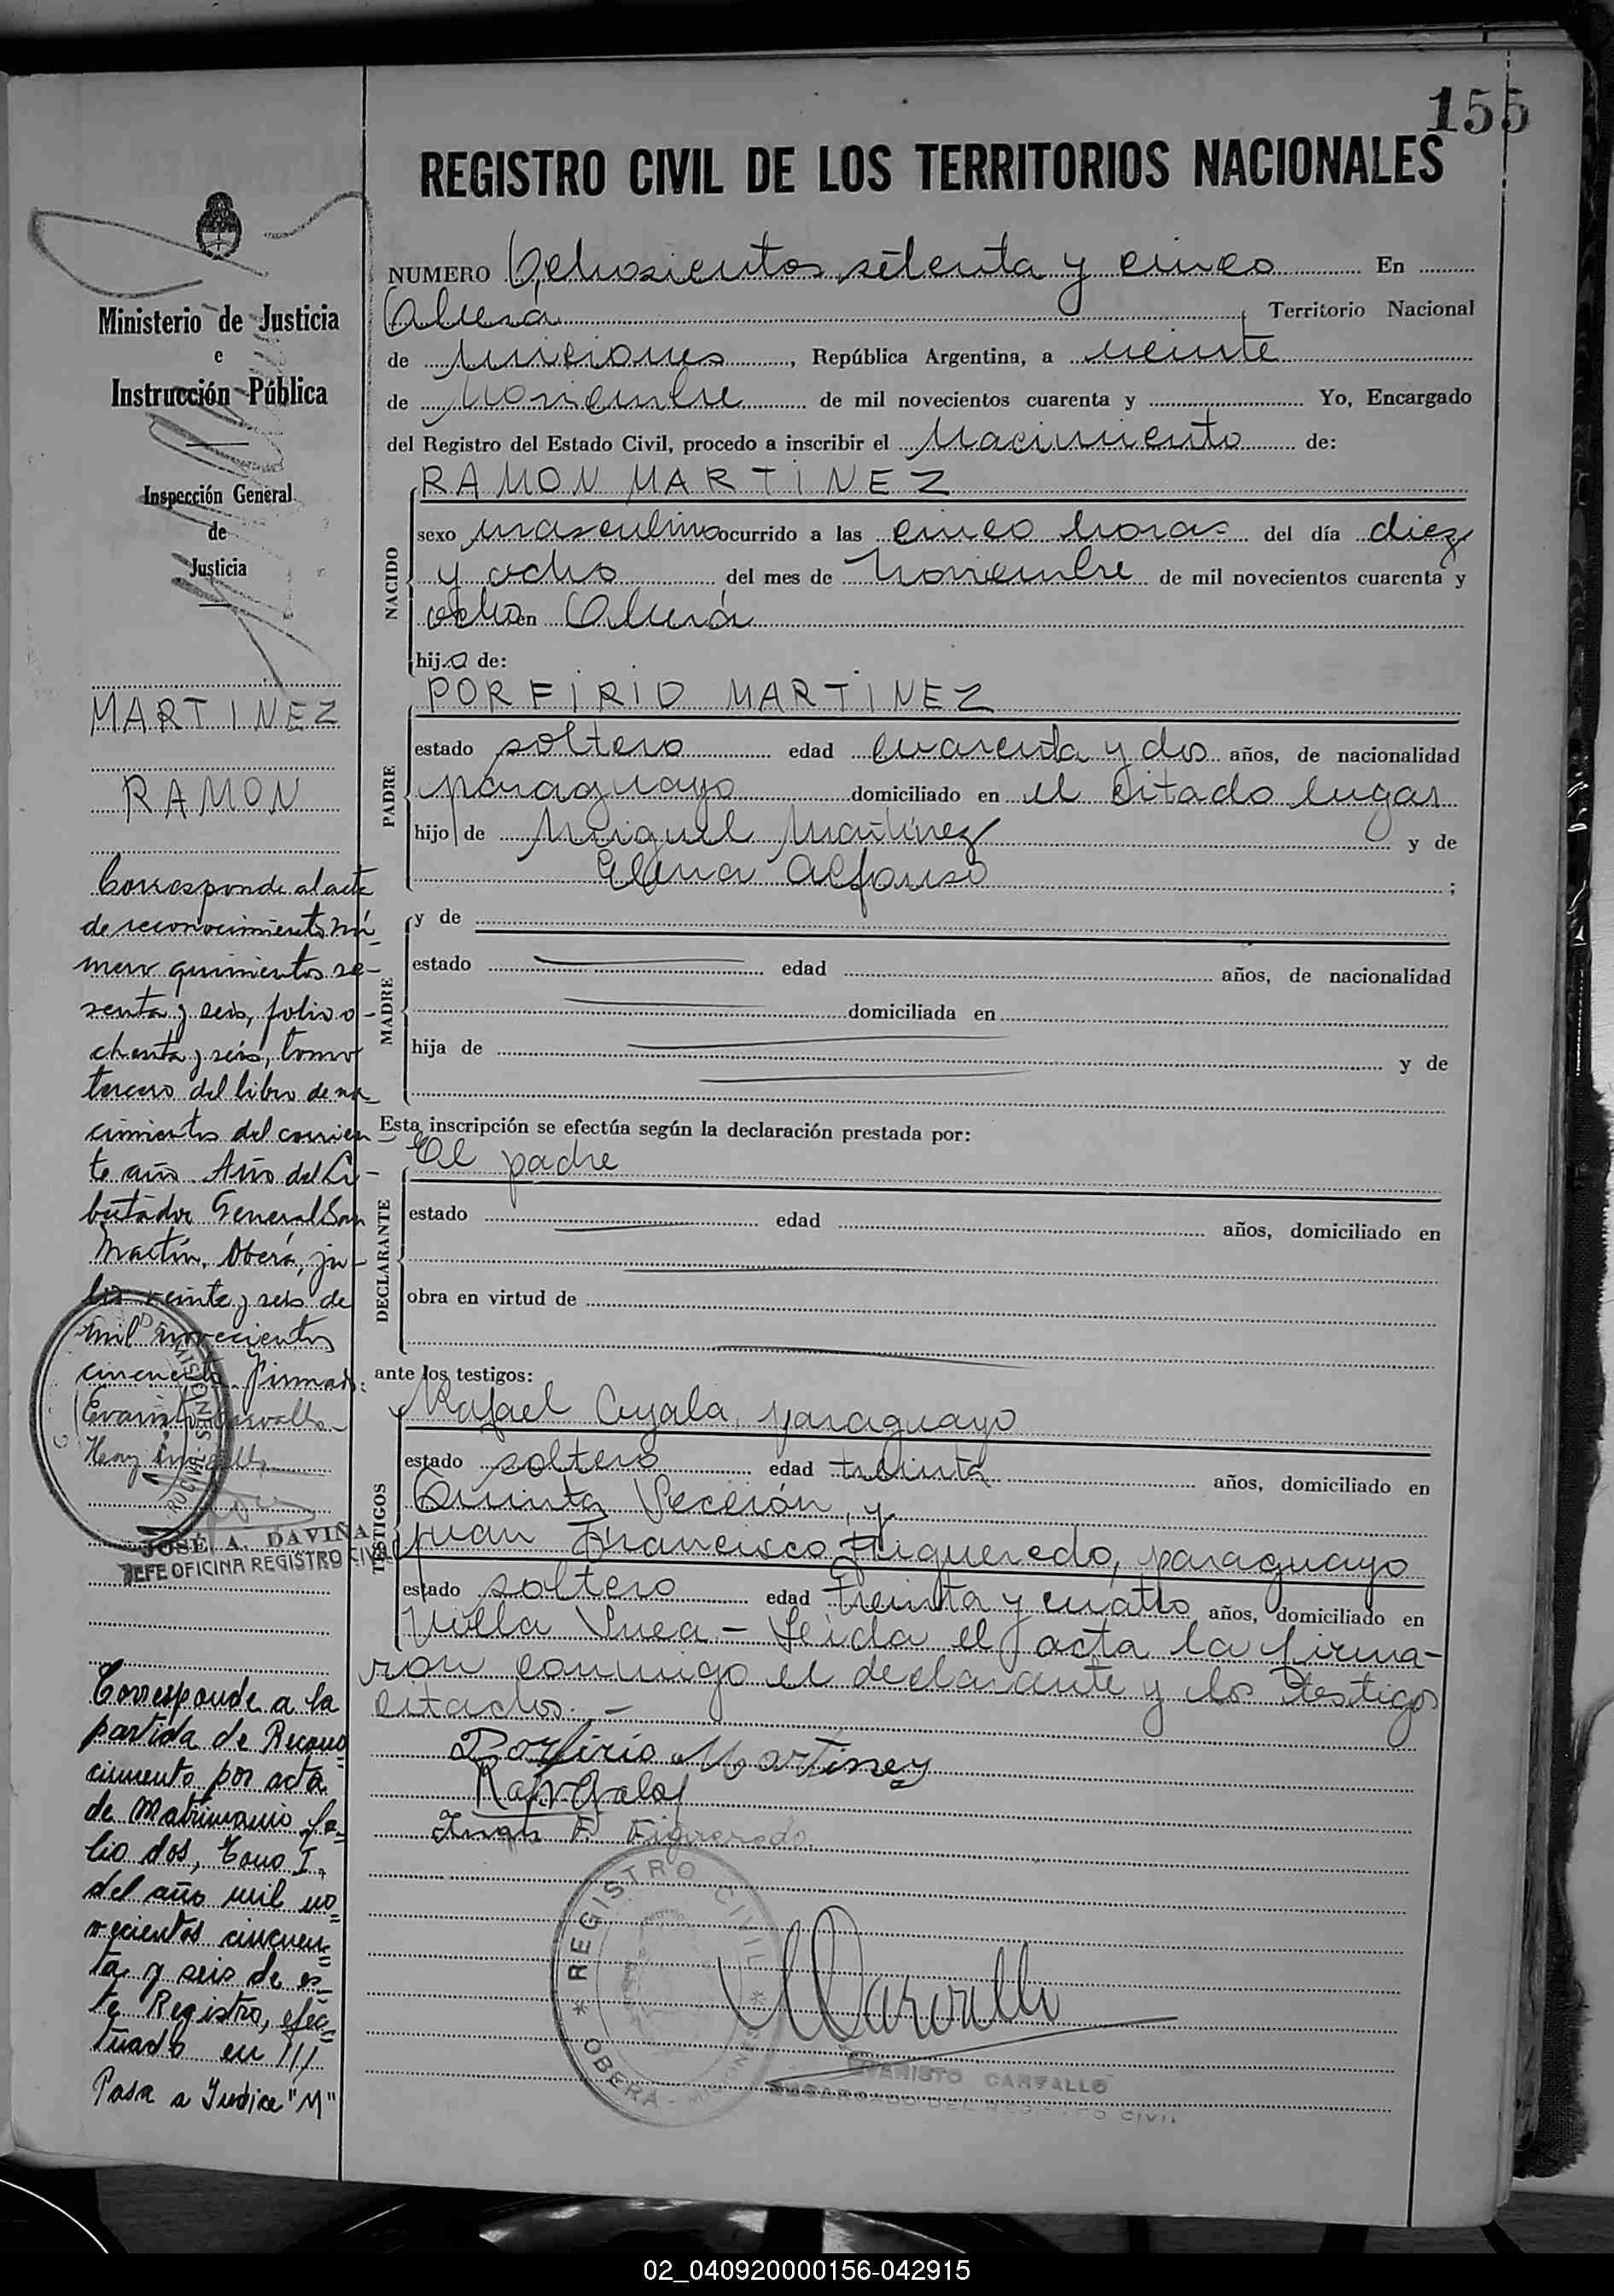 155
REGISTRO CIVIL DE LOS TERRITORIOS NACIONALES
NUMERO Ochosientos setenta y cinco En
Oberá, Territorio Nacional
de Misiones, República Argentina, a veinte
de Noviembre de mil novecientos cuarenta y Yo, Encargado
del Registro del Estado Civil, procedo a inscribir el Nacimiento de:
NACIDO
RAMON MARTINEZ
sexo masculino ocurrido a las cinco horas del día diez
y ocho del mes de Noviembre de mil novecientos cuarenta y
ocho en Oberá
hijo de:
PADRE
PORFIRIO MARTINEZ
estado soltero edad cuarenta y dos años, de nacionalidad
paraguayo domiciliado en el citado lugar
hijo de Miguel Martínez y de
Elena Alfonso ;
MADRE
y de
estado edad años, de nacionalidad
domiciliada en
hija de y de
Esta inscripción se efectúa según la declaración prestada por:
DECLARANTE
El padre
estado edad años, domiciliado en
obra en virtud de
ante los testigos:
TESTIGOS
Rafael Ayala, paraguayo
estado soltero edad treinta años, domiciliado en
Quinta Sección, y
Juan Francisco Figueredo, paraguayo
estado soltero edad treinta y cuatro años, domiciliado en
Villa Svea - Leida el acta la firma-
ron conmigo el declarante y los testigos
citados. -
Porfirio Martinez
Juan F. Figueredo
* REGISTRO CIVIL *
OBERA - MISIONES
EVARISTO CARVALLO
ENCARGADO DEL REGISTRO CIVIL
Ministerio de Justicia
e
Instrucción Pública
Inspección General
de
Justicia
MARTINEZ
RAMON
Corresponde al acta
de reconocimiento nú-
mero quinientos se-
senta y seis, folio o-
chenta y seis, tomo
tercero del libro de na-
cimientos del corrien-
te año. Año del Li-
bertador General San
Martín. Oberá, ju-
lio veinte y seis de
mil novecientos
cincuenta. Firmado:
Evaristo Carvallo
JOSÉ A. DAVIÑA
JEFE OFICINA REGISTRO CIVIL
Corresponde a la
partida de Recono
cimiento por acta
de Matrimonio fo=
lio dos, Tomo I,
del año mil no=
vecientos cincuen=
ta y seis de es=
te Registro, efec=
tuado en ///
Pasa a Indice "M"
02_040920000156-042915